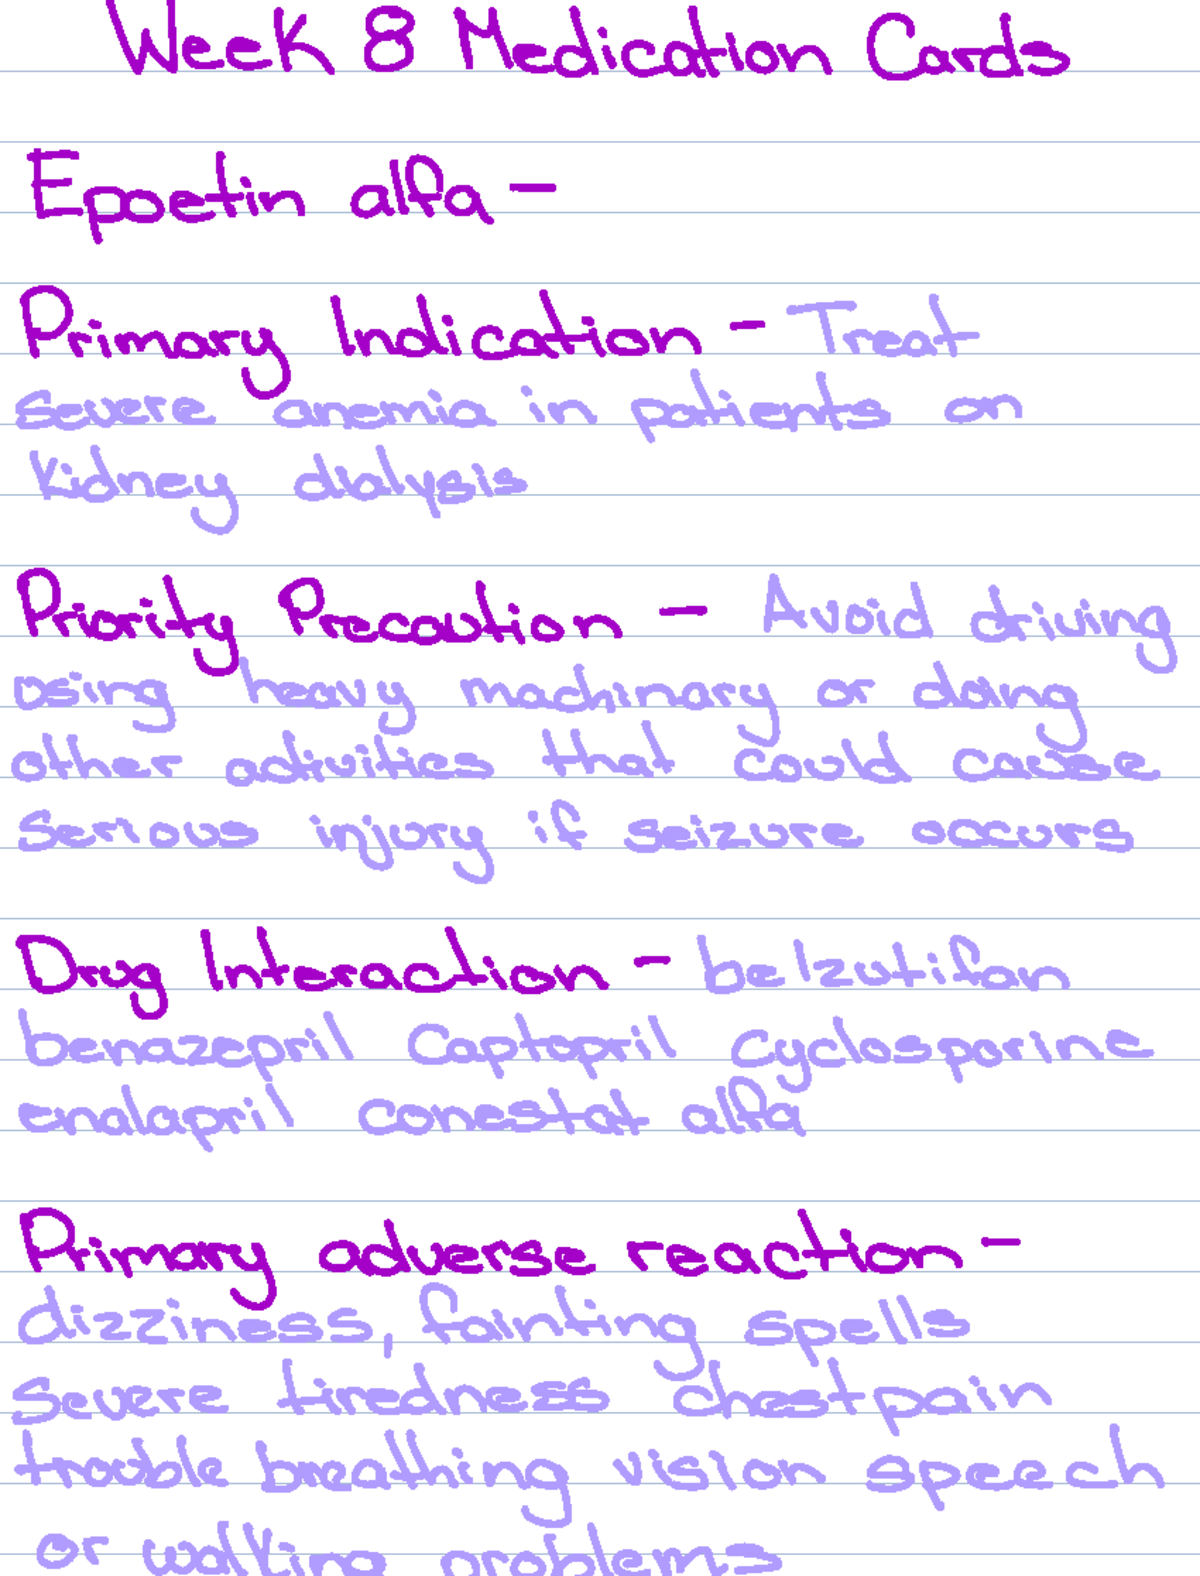 Week 8 Medication Cards
Epoetin alfa -
Primary Indication - Treat
severe anemia in patients on
kidney dialysis
Priority Precaution - Avoid driving
using heavy machinary or doing
other activities that could cause
serious injury if seizure occurs
Drug Interaction - belzutifan
benazepril Captopril Cyclosporine
enalapril conestat alfa
Primary adverse reaction -
dizziness, fainting spells
severe tiredness chest pain
trouble breathing vision speech
or walking problems